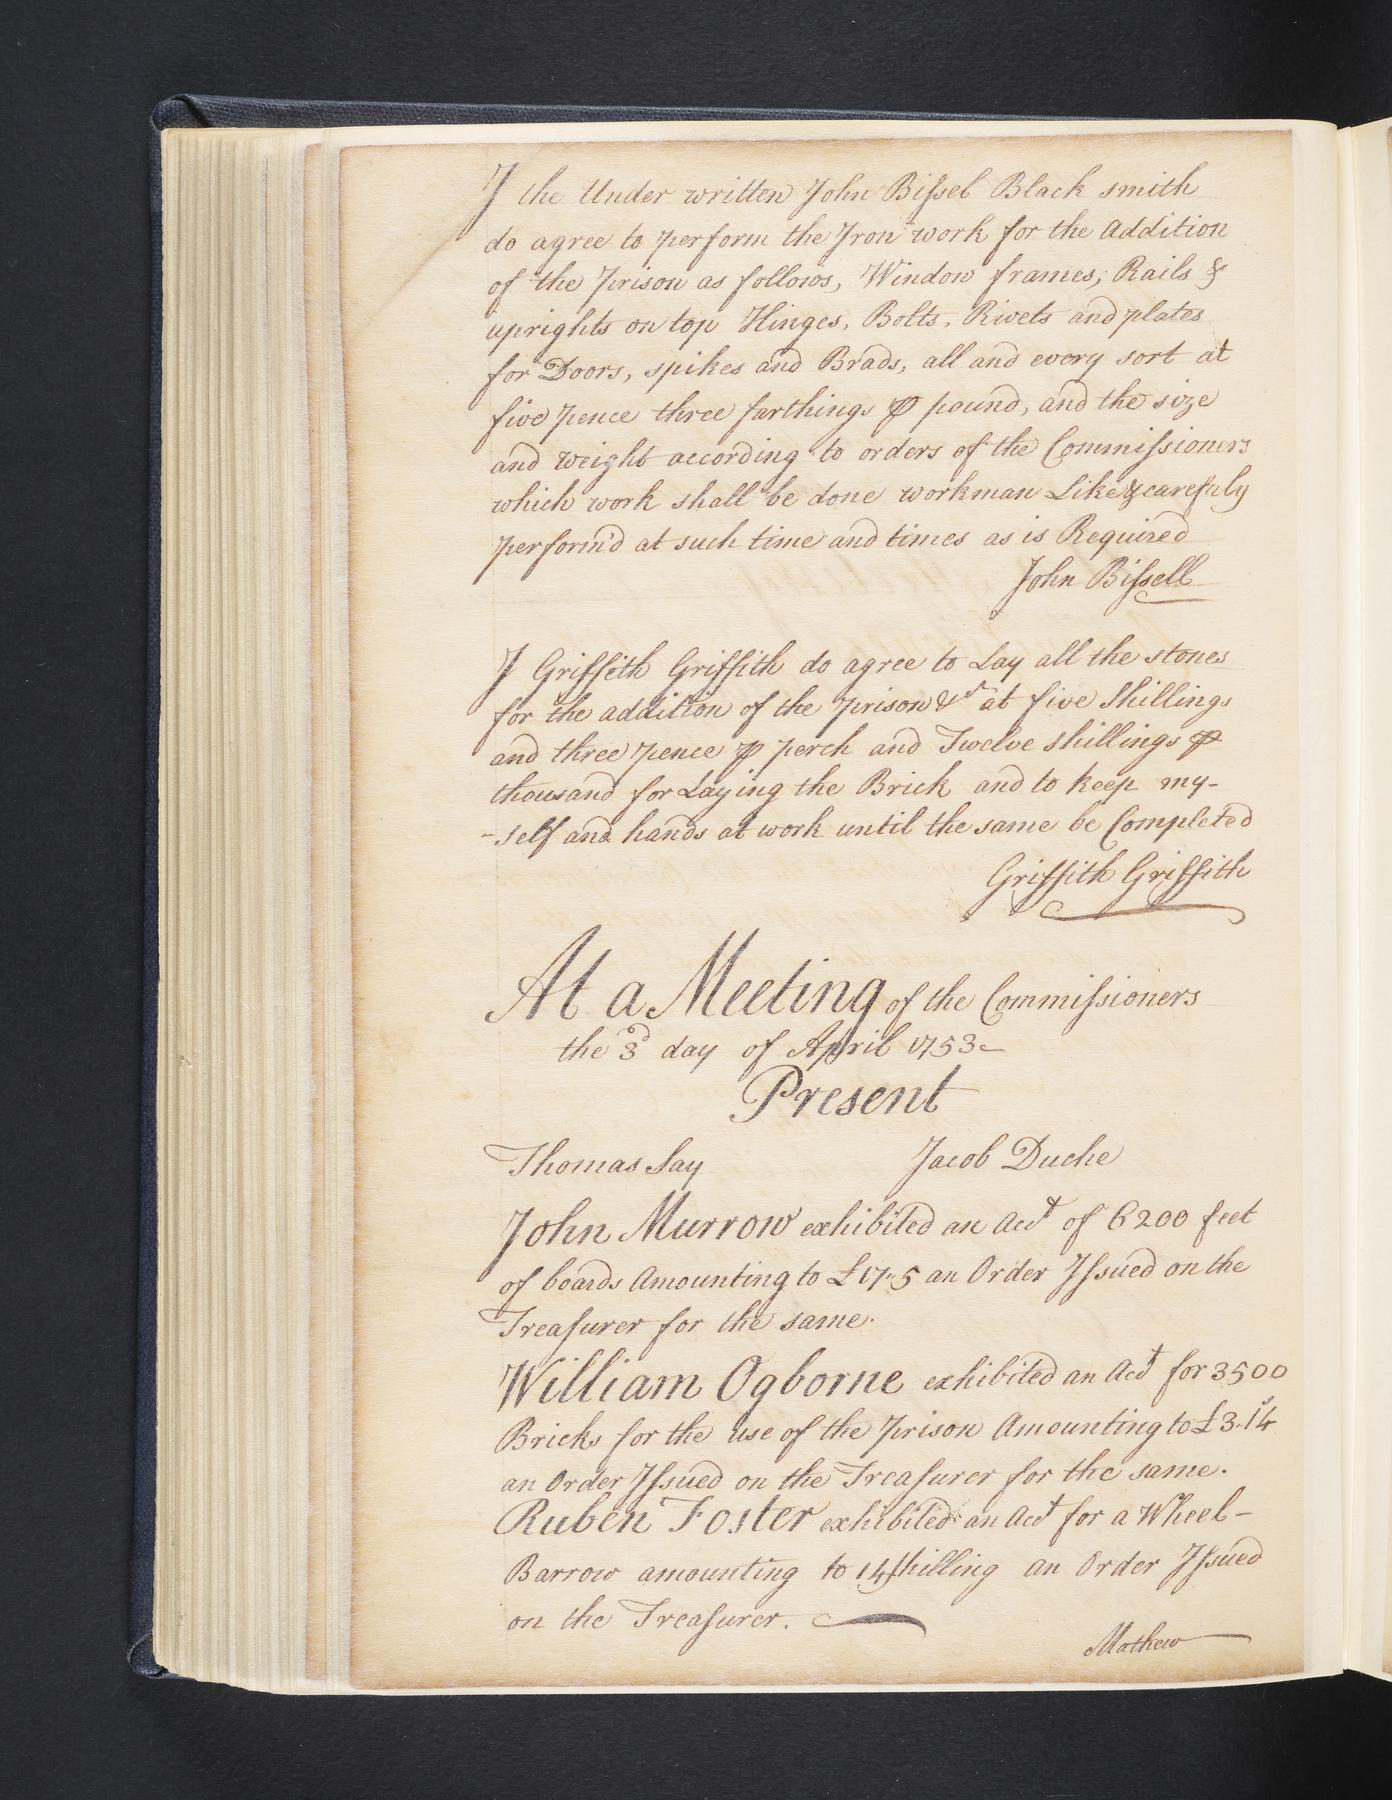 I the Under written John Bissel Black smith
do agree to perform the Iron work for the Addition
of the prison as follows, Window frames, Rails &
uprights on top Hinges, Bolts, Rivets and plates
for Doors, spikes and Brads, all and every sort at
five pence three farthings ⅌ pound, and the size
and weight according to orders of the Commissioners
which work shall be done workman Like & carefuly
perform'd at such time and times as is Required
John Bissell
I Griffith Griffith do agree to Lay all the stones
for the addition of the prison &ca at five Shillings
and three pence ⅌ perch and Twelve shillings ⅌
thousand for Laying the Brick and to keep my-
-self and hands at work until the same be Completed
Griffith Griffith
At a Meeting of the Commissioners
the 3d day of April 1753
Present
Thomas Say Jacob Duche
John Murrow exhibited an Acct of 6200 feet
of boards Amounting to £17"5 an Order Issued on the
Treasurer for the same.
William Ogborne exhibited an Acct for 3500
Bricks for the use of the prison Amounting to £3.14
an Order Issued on the Treasurer for the same.
Ruben Foster exhibited an Acct for a Wheel-
Barrow amounting to 14 shilling an Order Issued
on the Treasurer.
Mathew